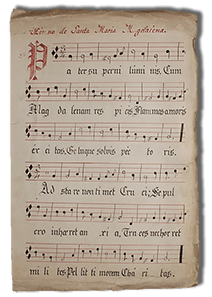 Himno de Santa Maria Magdalena.
Pa ter su perni lumi nis, Cum
Mag da lenam res pi cis Flammas amoris
ex ci tas, Ge luque solvis pec to ris.
Ad sta re non ti met Cru ci; Se pul
cro inhæret an xi a, Tru ces nec horret
mi li tes Pel lit ti morem Cha ri tas.